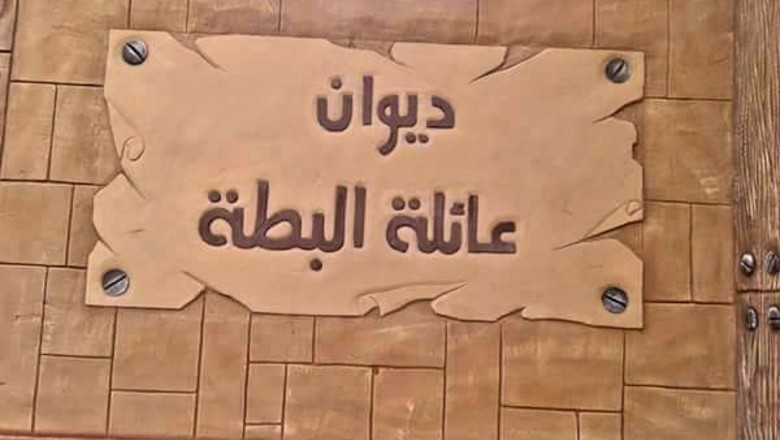 ديوان
عائلة البطة